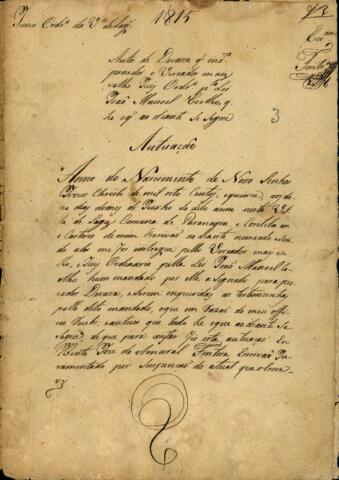 Juizo Ordº da Vª de Lagˢ
1815
Auto de Devaça q̃ m.ᵒᵘ
proceder o Veriador mais
velho Juiz Ordº pª Lei
José Manoel Coelho, q̃
he oq̃ ao diante se segue
3
Autuaçaõ
Anno do Nascimento de Nosso Senhor
Jezus Christo de mil oito Centos, e quinze, aos
des dias do mes de do dito anno nesta Vil-
la de Lages Comarca de Paranagua, e sendo la em
o Cartorio de mim Escrivaõ ao diante nomeado sen-
do ahi me foi entregue pello Veriador mais ve-
lho, Juiz Ordinario pella Lei José Manoel Coe-
lho hum mandado por elle asignado para pro-
ceder Devaça, e serem inqueridas as testemunhas
pello dito mandado, o que em razaõ de meu offi-
cio Recebi, e autuei que todo he oque ao diante se
Segue, de que para constar fis esta autuaçaõ Eu
Bento Joze do Amaral Fontora Escrivaõ Ju-
ramentado por Suspençaõ do atual que o Escre-
vy